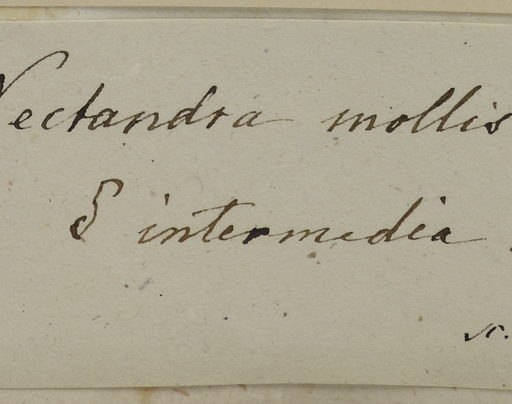 Nectandra mollis
δ intermedia